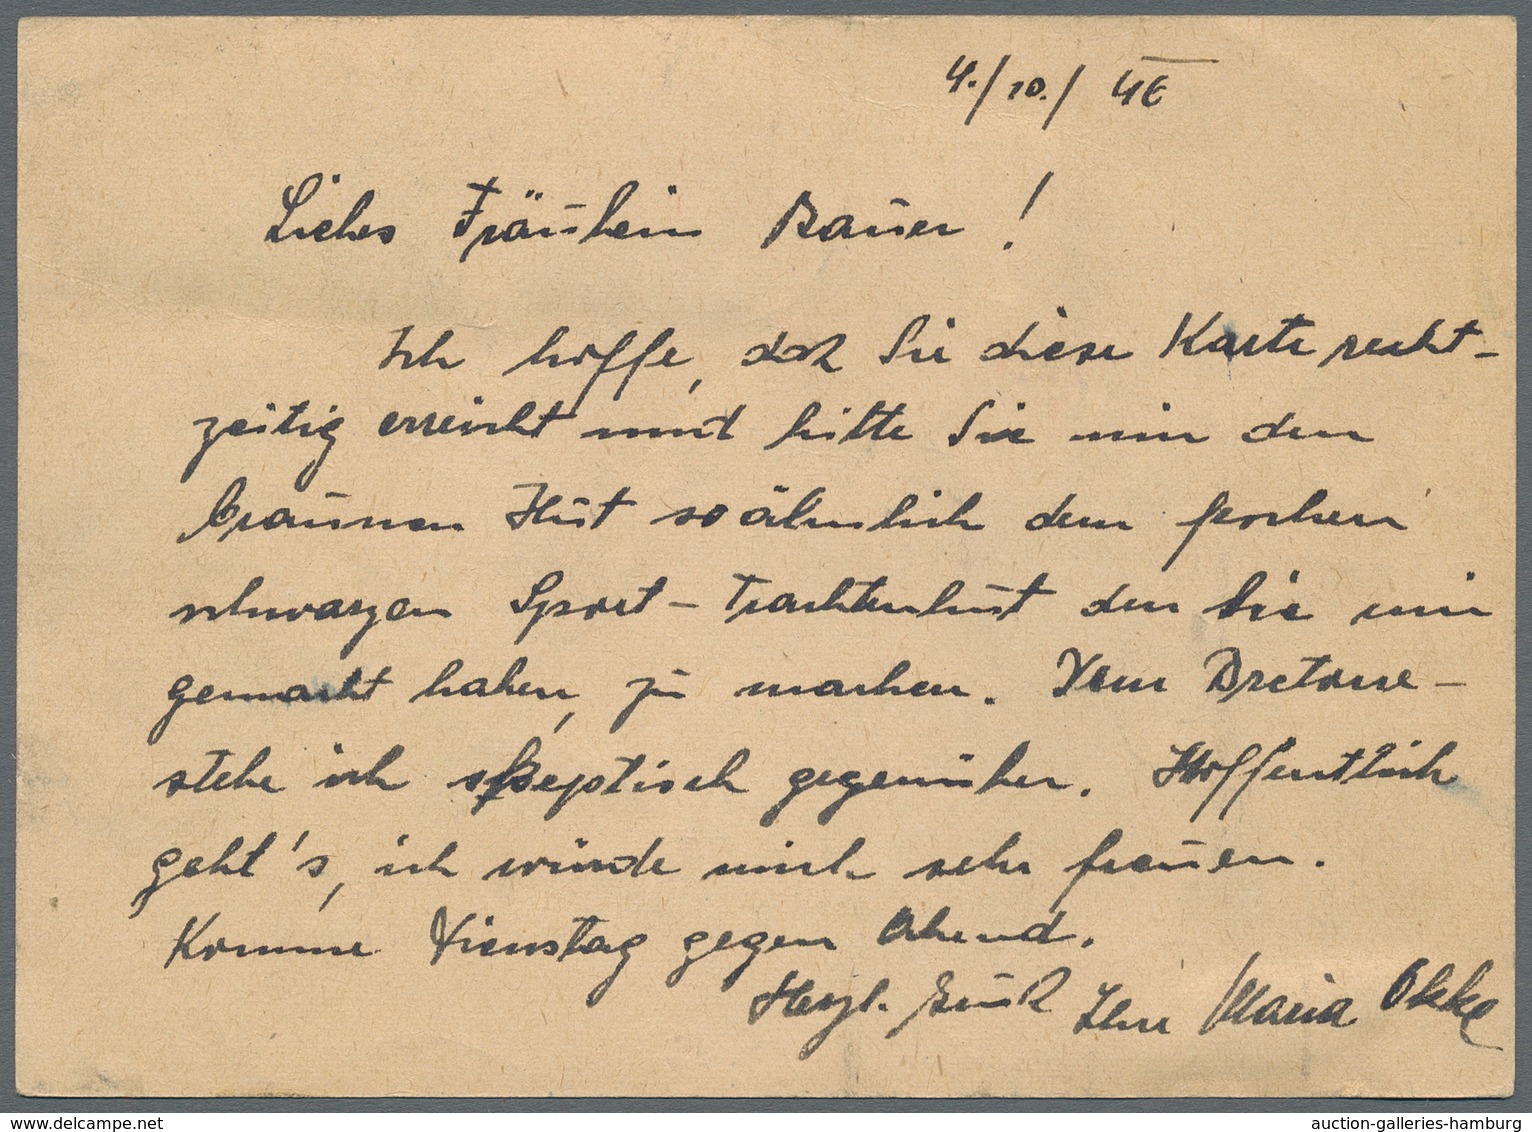 4./10./ 46
Liebes Fräulein Bauer!
Ich hoffe, daß Sie diese Karte recht-
zeitig erreicht und bitte Sie mir den
braunen Hut so ähnlich dem feschen
schwarzen Sport-Trachtenhut den Sie mir
gemacht haben, zu machen. Dem Bretone-
stehe ich skeptisch gegenüber. Hoffentlich
geht's, ich würde mich sehr freuen.
Komme Dienstag gegen Abend.
Herzl. Gruß Ihre Maria Okke
www.delcampe.net
auction-galleries-hamburg